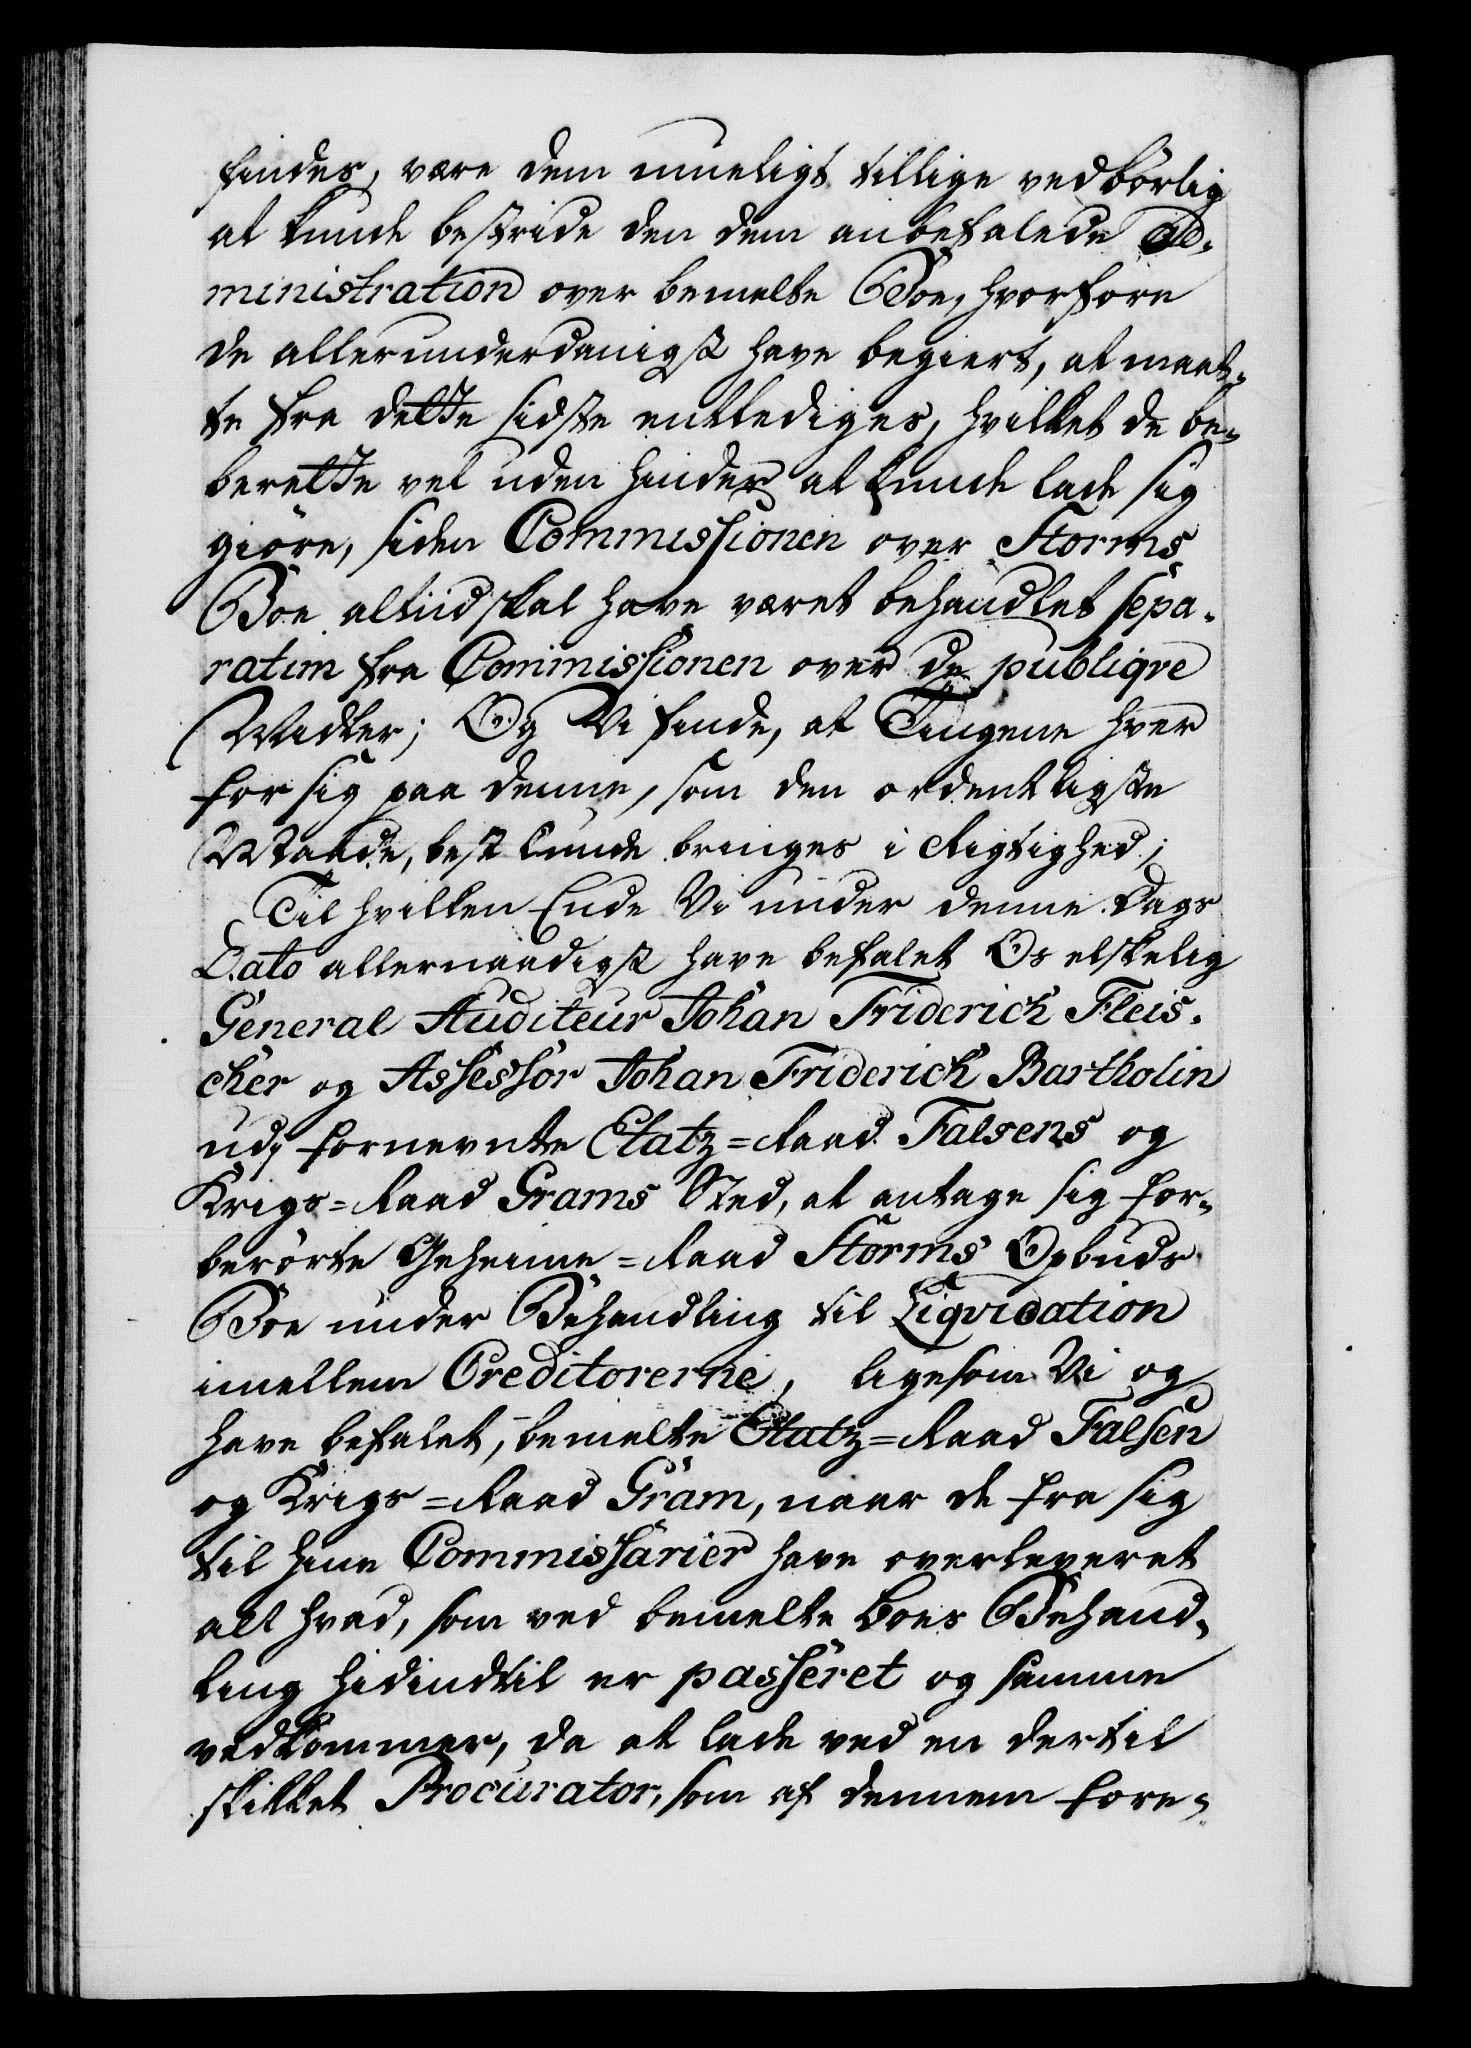 findes, være dem mueligt tillige vedbørlig
at kunde bestride den dem anbefalede Ad-
ministration over bemelte Boe, hvorfore
de allerunderdanigst have begiert, at maat-
te fra dette sidste entlediges, hvilket de be-
berette vel uden Hinder at kunde lade sig
giøre, siden Commissionen over Storms
Boe altiid skal have været behandlet sepa-
ratim fra Commissionen over de publiqve
Midler; Og Vi finde, at Tingene hver
for sig paa denne, som den ordentligste
Maade, best kunde bringes i Rigtighed;
Til hvilken Ende Vi under denne Dags
Dato allernaadigst have befalet Os elskelig
General Auditeur Johan Friderich Fleis-
cher og Assessor Johan Friderich Bartholin
udj fornevnte Etatz=Raad Falsens og
Krigs=Raad Grams Sted, at antage sig for-
berørte Geheime=Raad Storms Opbuds
Boe under Behandling til Liqvidation
imellem Creditorerne, ligesom Vi og
have befalet, bemelte Etatz=Raad Falsen
og Krigs=Raad Gram, naar de fra sig
til hine Commissarier have overleveret
alt hvad, som ved bemelte Boes Behand-
ling hidindtil er passeret og samme
vedkommer, da at lade ved en dertil
skikket Procurator, som af dennem fore-